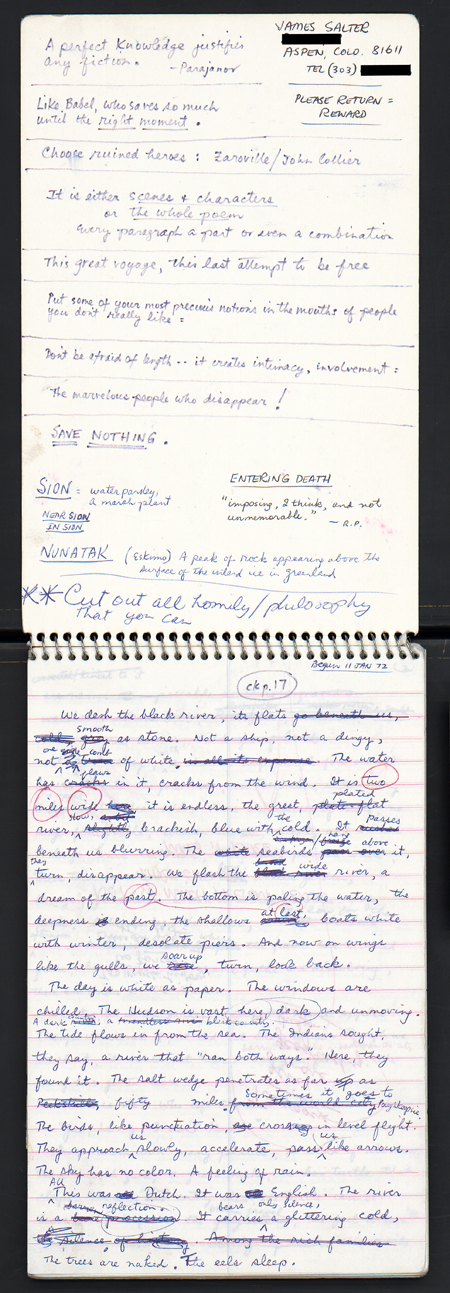 JAMES SALTER
ASPEN, COLO. 81611
TEL (303)
PLEASE RETURN =
REWARD
A perfect knowledge justifies
any fiction. - Parajanov
Like Babel, who saves so much
until the right moment.
Choose ruined heroes: Zaroville/John Collier
It is either scenes & characters
or the whole poem
every paragraph a part or even a combination
This great voyage, this last attempt to be free
Put some of your most precious notions in the mouths of people
you don't really like =
Don't be afraid of length -- it creates intimacy, involvement :
The marvelous people who disappear!
SAVE NOTHING.
SION = water parsley,
a marsh plant
NEAR SION
IN SION
ENTERING DEATH
"imposing, I think, and not
unmemorable." - R.P.
NUNATAK (Eskimo) A peak of rock appearing above the
surface of the inland ice in greenland
** Cut out all homily/philosophy
That you can
Begun 11 JAN 72
ck p. 17
We dash the black river, its flats go beneath us,
smooth
as stone. Not a ship, not a dingy,
one
not of white. The water
flaws
has cracks in it, cracks from the wind. It is two
plated
miles wide it is endless, the great, flat
Now, the passes
river, slightly brackish, blue with cold. It
above
beneath us blurring. The seabirds it,
they wide
turn, disappear. We flash the black river river, a
dream of the past. The bottom is paling the water, the
at last,
deepness is ending, the shallows boats white
with winter, desolate piers. And now on wings
soar up
like the gulls, we turn, look back.
The day is white as paper. The windows are
chilled. The Hudson is vast here, dark and unmoving.
The tide flows in from the sea. The Indians sought,
they say, a river that "ran both ways". Here, they
found it. The salt wedge penetrates as far up as
Sometimes it goes to
fifty miles from the world city Poughkeepsie.
The birds, like punctuation, cross in level flight.
us us
They approach slowly, accelerate, pass like arrows.
The sky has no color. A feeling of rain.
All
This was Dutch. It was English. The river
reflection. bears only silence,
is a procession. It carries a glittering cold,
silence of Among the rich families
The trees are naked. The eels sleep.